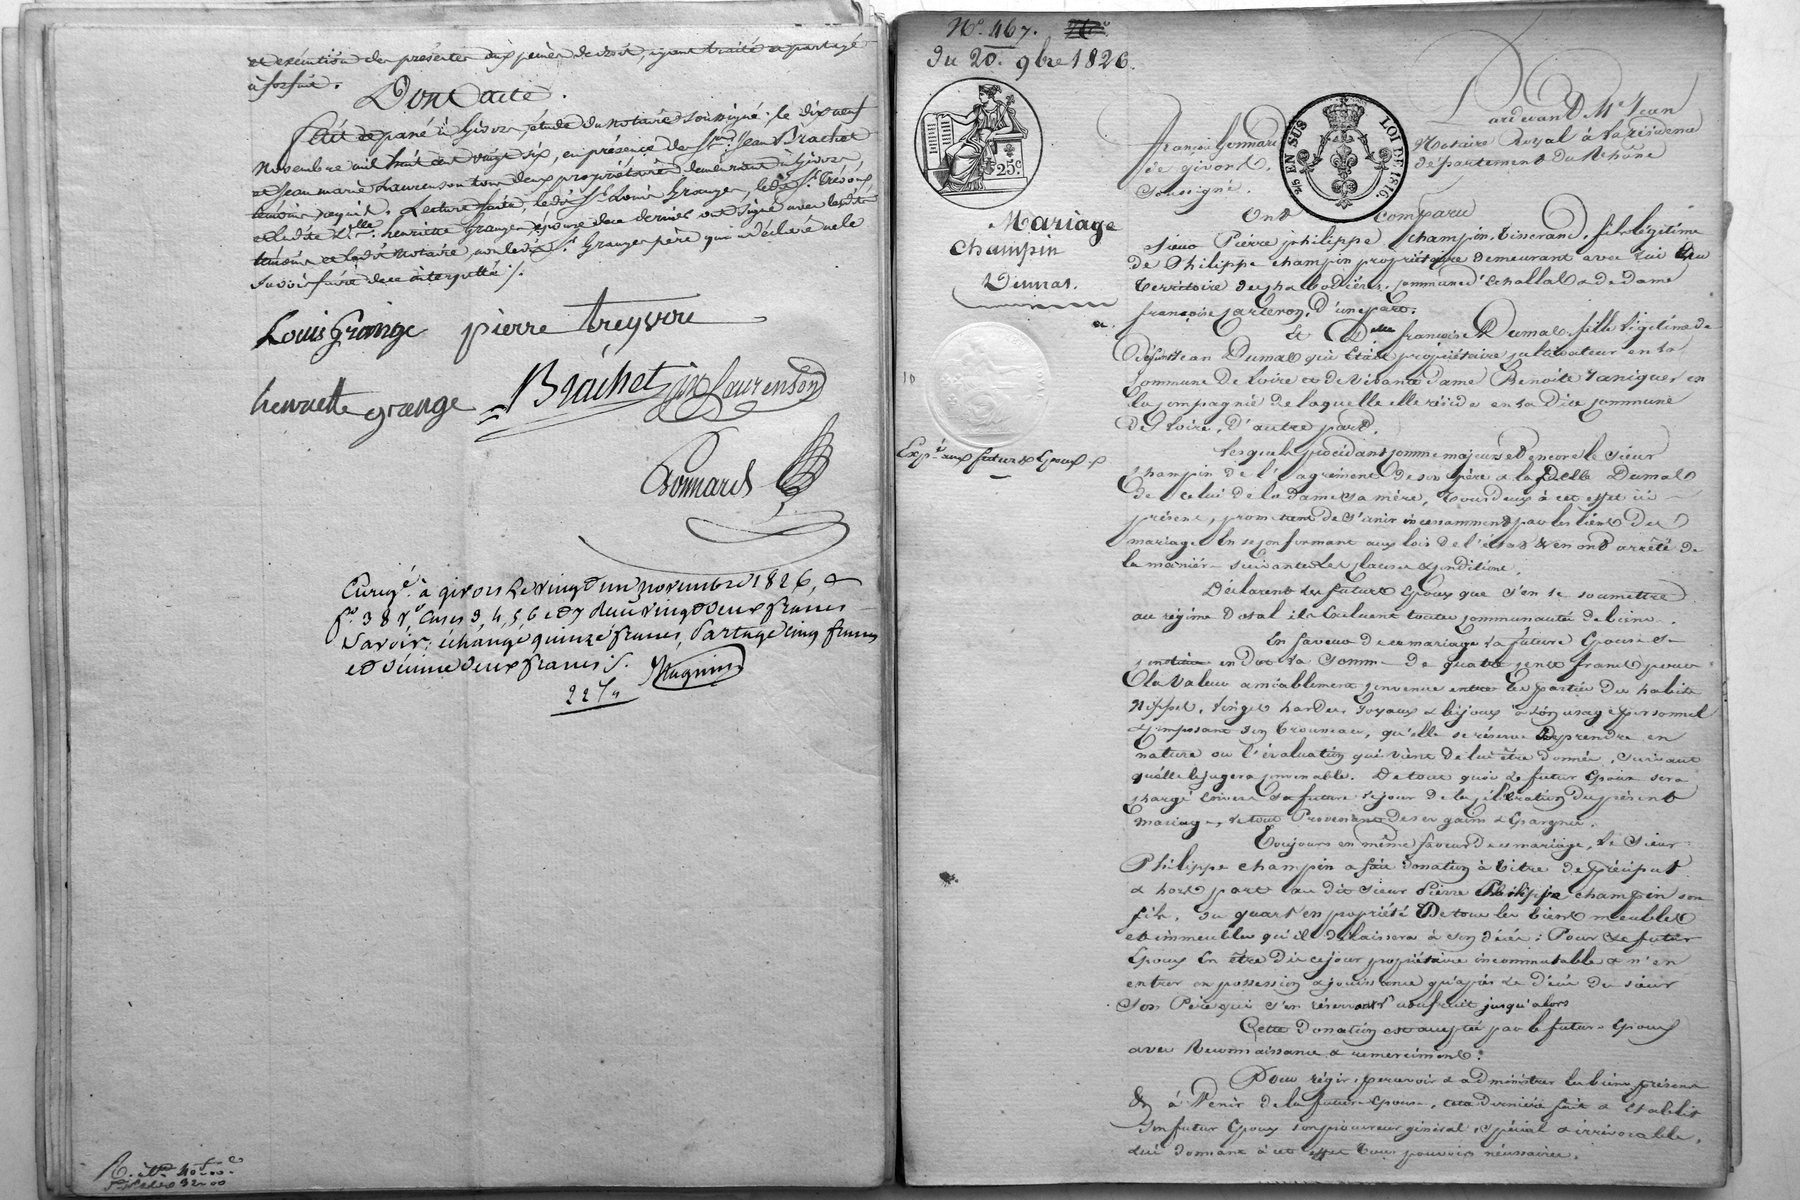 et exécution des présentes aux peines de droit, ayant traité et partagé
à forfait.
Dont acte.
Fait et passé à Givors, étude du notaire soussigné, le dix neuf
Novembre mil huit cent vingt six, en présence de Srs. Jean Brachet
et Jean marie Laurenson tous deux propriétaires demeurant à Givors,
témoins requis. Lecture faite, ledit Sr. Louis Granger, ledit Sr. Treÿvoux
et ladite Delle. henriette Granger épouse de ce dernier ont signé avec lesdits
témoins et ledit Notaire, non ledit Sr. Granger père qui a déclaré ne le
savoir faire de ce interpellé /.
Louis grange pierre treyvou
henriette grange Brachet jm Laurenson
Bonnard
Enregé. à givors le vingt un novembre 1826,
fo. 38 ro. Cases 3, 4, 5, 6 et 7 Reçu vingt deux francs
Savoir: échange quinze francs, Partage cinq francs
et dixième deux francs /.
22 f „ Magnin
No. 467.
Du 20. 9bre 1826.
25c.
2/5 EN SUS LOI DE 1816
Mariage
Champin
Dumas.
Expé. aux futurs Epoux
Pardevant Me Jean
François Bonnard Notaire Royal à la résidence
de givors, département du Rhône
Soussigné.
Ont comparu
Sieur Pierre philippe Champin, tisserand, fils légitime
de Philippe champin propriétaire demeurant avec lui au
territoire des habodières, commune d'échallas & de dame
françoise carteron, d'une part.
Et Delle françoise Dumas fille légitime de
Défunt Jean Dumas qui était propriétaire cultivateur en la
Commune de Loire et de vivante dame Benoite Saniguer en
la compagnie de laquelle elle réside en la dite commune
de Loire, D'autre part.
Lesquels procédant comme majeurs et encore le sieur
Champin de l'agrément de son père & la Delle Dumas
de celui de la dame sa mère, tous deux à cet effet ici
présens, promettent de s'unir incessamment par les liens du
mariage en se conformant aux lois de l'état & en ont arrêté de
la manière suivante les clauses & conditions.
Déclarent les futurs Epoux que s'en se soumettre
au régime Dotal ils excluent toute communauté de biens.
En faveur de ce mariage la future Epouse se
constitue en Dot la somme de quatre cents francs pour
la valeur amiablement convenue entre les parties des habits
nippes, linges hardes, joyaux & bijoux à son usage personnel
& composant son trousseau, qu'elle se réserve de reprendre en
nature ou l'évaluation qui vient de lui être donnée, suivant
qu'elle le jugera convenable. De tout quoi le futur Epoux sera
chargé envers sa future le jour de la célébration du présent
mariage, le tout Provenant de ses gains & épargnes.
Toujours en même faveur de ce mariage, le Sieur
Philippe champin a fait donation à titre de préciput
& hors part au dit sieur Pierre Philippe champin son
fils, du quart en propriété De tous les biens meubles
et immeubles qu'il délaissera à son décès; Pour le futur
Epoux en être dès ce jour propriétaire incommutable & n'en
entrer en possession & jouissance qu'après le décès du sieur
son Père qui s'en réserve l'usufruit jusqu'alors
Cette Donation est acceptée par le futur Epoux
avec Reconnaissance & remerciment.
Pour régir, percevoir & administrer les biens présens
& à Venir de la future Epouse, cette dernière fait & établit
son futur Epoux son procureur général, spécial & irrévocable,
lui donnant à cet effet tous pouvoirs nécessaires.